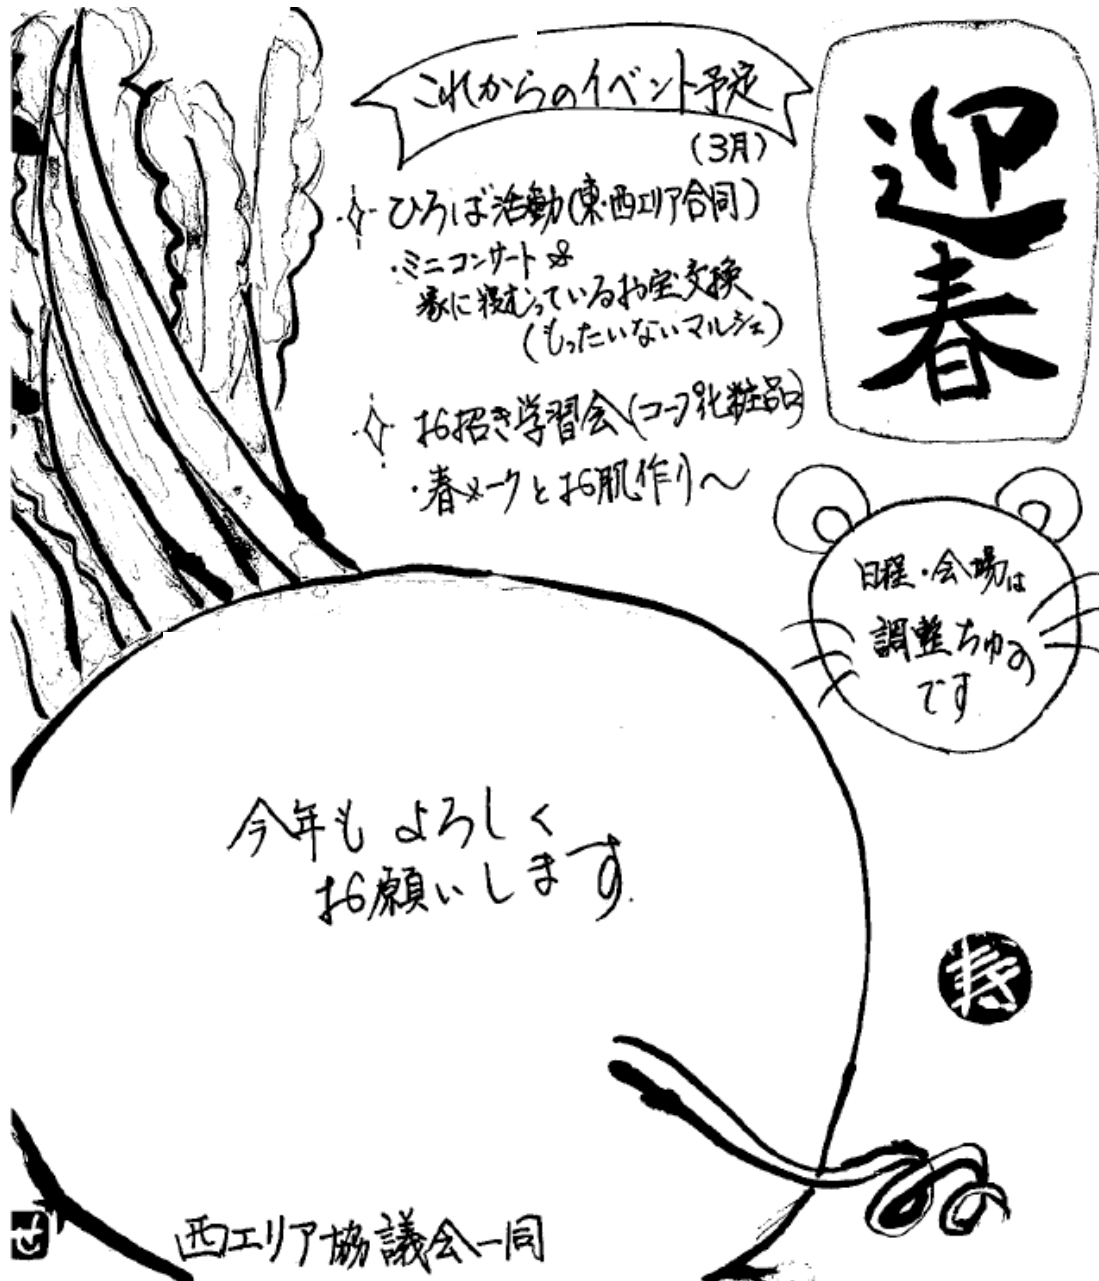 これからのイベント予定
(3月)
迎春
ひろば活動(東・西エリア合同)
・ミニコンサート&
家に寝むっているお宝交換
(もったいないマルシェ)
お招き学習会(コープ化粧品)
・春メークとお肌作り〜
日程・会場は
調整ちゅう
です
今年もよろしく
お願いします.
西エリア協議会一同